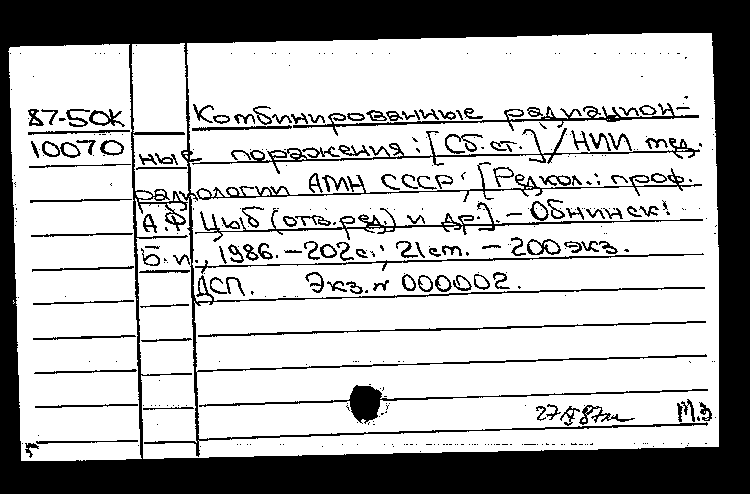 87-50К Комбинированные радиацион-
10070 ные поражения: [Сб. ст.] / НИИ мед.
радиологии АМН СССР; [Редкол.: проф.
А.Ф. Цыб (отв. ред.) и др.]. – Обнинск:
Б. и., 1986. – 202 с.; 21 ст. – 200 экз.
ДСП. Экз. № 000002.
М.З
5